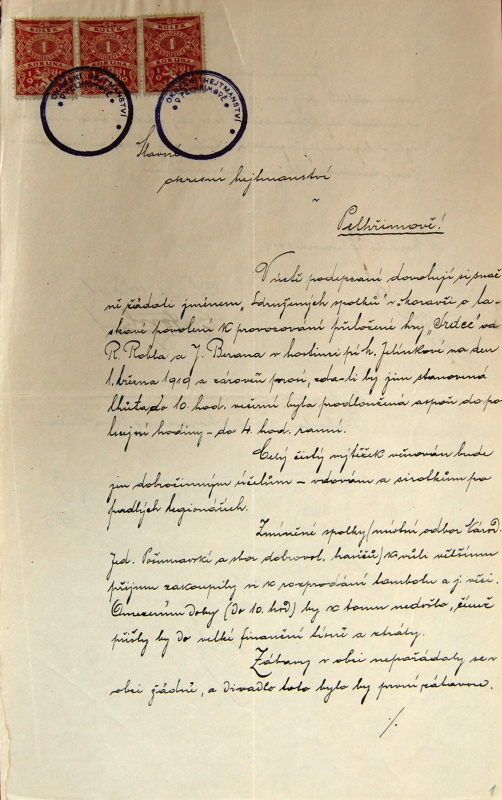 KOLEK
KOLEK
KOLEK
1
1
1
KORUNA
KORUNA
KORUNA
OKRESNÍ HEJTMANSTVÍ
V PELHŘIMOVĚ
OKRESNÍ HEJTMANSTVÍ
V PELHŘIMOVĚ
Slavné
okresní hejtmanství
v
Pelhřimově!
V úctě podepsaní dovolují si snaž
ně žádati jménem „Sdružených spolků" v o la-
skavé povolení k provozování přiložené hry „Srdce" od
R. Robla a J. Berana v hostinci pí k. Jelínkové na den
1. března 1919 a zároveň prosí, zda-li by jim stanovená
lhůta do 10 hod. večerní byla prodloužená aspoň do po
licejní hodiny – do 4. hod. ranní.
Celý čistý výtěžek věnován bude
jen dobročinným účelům – vdovám a sirotkům po
padlých legionářích.
Zmíněné spolky (místní odbor Národ.
Jed. Pošumavské a sbor dobrovol. hasičů) k vůli většímu
příjmu zakoupily si k rozprodání tombolu a j. věci.
Omezením doby (do 10. hod) by k tomu nedošlo, čímž
přišly by do velké finanční tísně a ztráty.
Zábavy v obci nepořádaly se v
obci žádné, a divadlo toto bylo by první zábavou.
./.
1